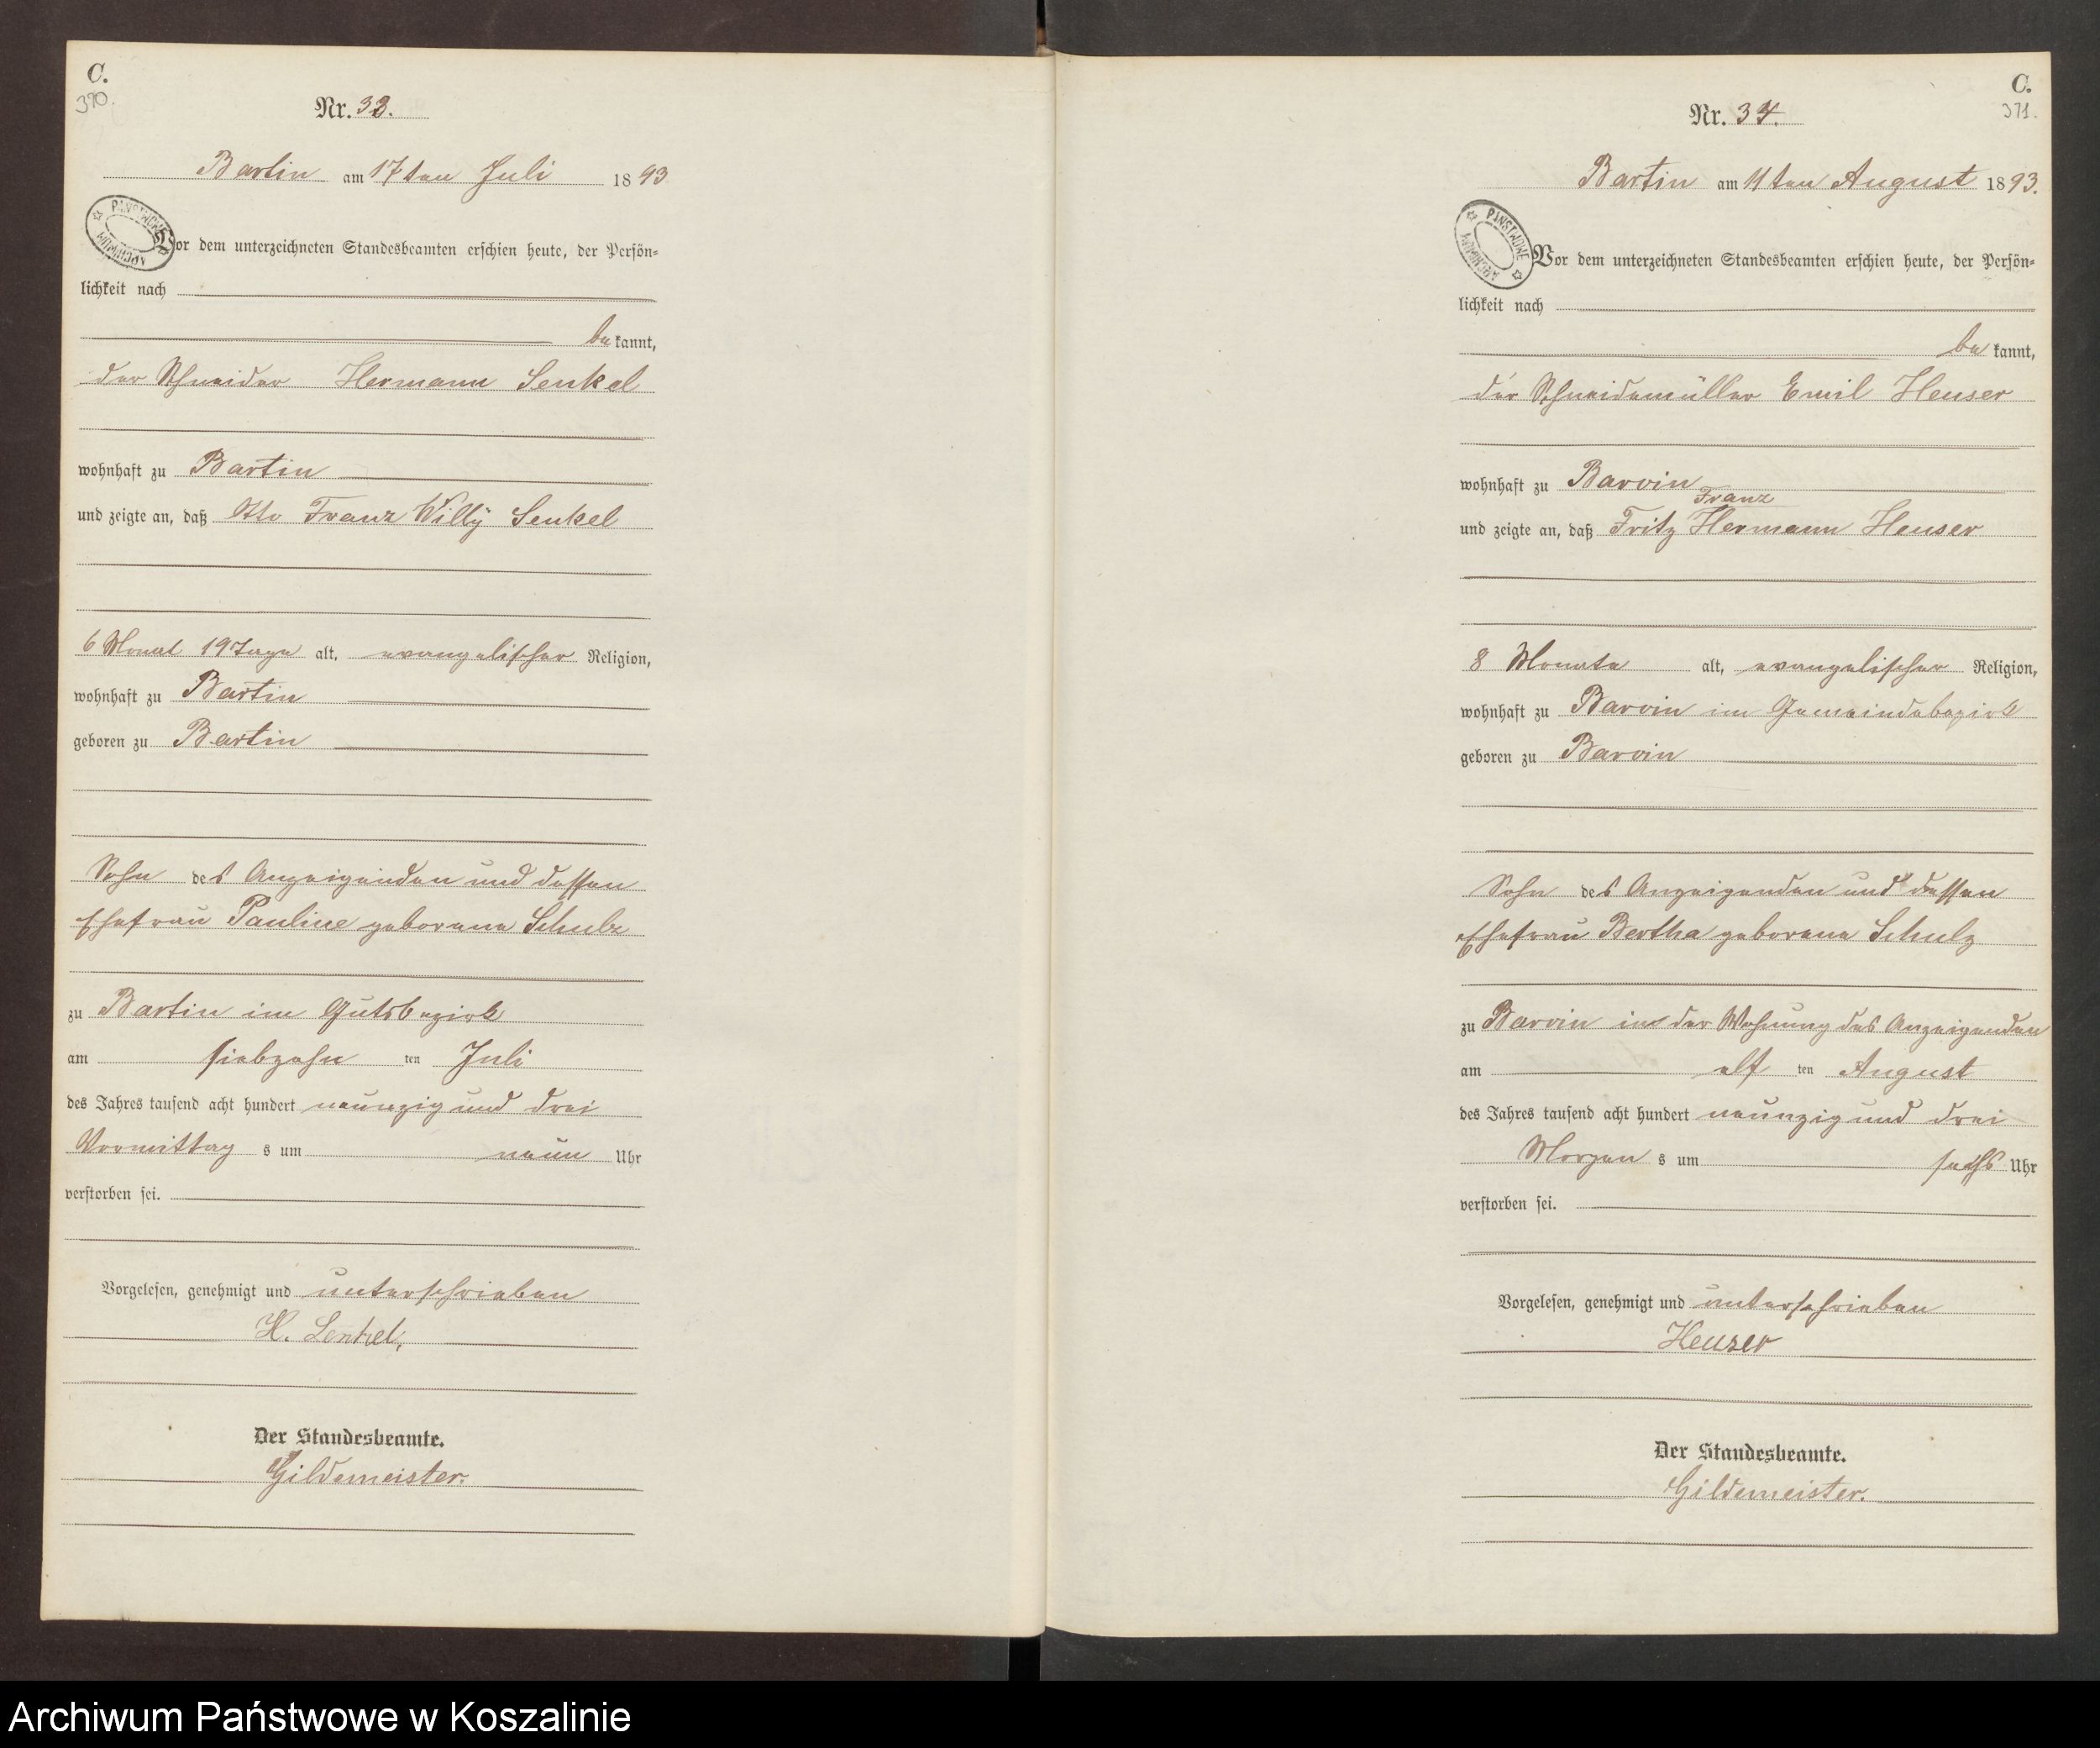 C.
390.
Nr. 33.
Bartin am 17ten Juli 1893
PAŃSTWOWE ARCHIWUM
Vor dem unterzeichneten Standesbeamten erschien heute, der Persön-
lichkeit nach
bekannt,
der Schneider Hermann Senkel
wohnhaft zu Bartin
und zeigte an, daß Otto Franz Willÿ Senkel
6 Monat 19 Tage alt, evangelischer Religion,
wohnhaft zu Bartin
geboren zu Bartin
Sohn des Anzeigenden und dessen
Ehefrau Pauline geborene Schulz
zu Bartin im Gutsbezirk
am siebzehn ten Juli
des Jahres tausend acht hundert neunzig und drei
Vormittag s um neun Uhr
verstorben sei.
Vorgelesen, genehmigt und unterschrieben
H. Senkel,
Der Standesbeamte.
Gildemeister.
C.
371.
Nr. 34.
Bartin am 11ten August 1893.
PAŃSTWOWE ARCHIWUM
Vor dem unterzeichneten Standesbeamten erschien heute, der Persön-
lichkeit nach
bekannt,
der Schneidemüller Emil Heuser
wohnhaft zu Barvin
Franz
und zeigte an, daß Fritz Hermann Heuser
8 Monate alt, evangelischer Religion,
wohnhaft zu Barvin im Gemeindebezirk
geboren zu Barvin
Sohn des Anzeigenden und dessen
Ehefrau Bertha geborene Schulz
zu Barvin in der Wohnung des Anzeigenden
am elf ten August
des Jahres tausend acht hundert neunzig und drei
Morgen s um sechs Uhr
verstorben sei.
Vorgelesen, genehmigt und unterschrieben
Heuser
Der Standesbeamte.
Gildemeister.
Archiwum Państwowe w Koszalinie